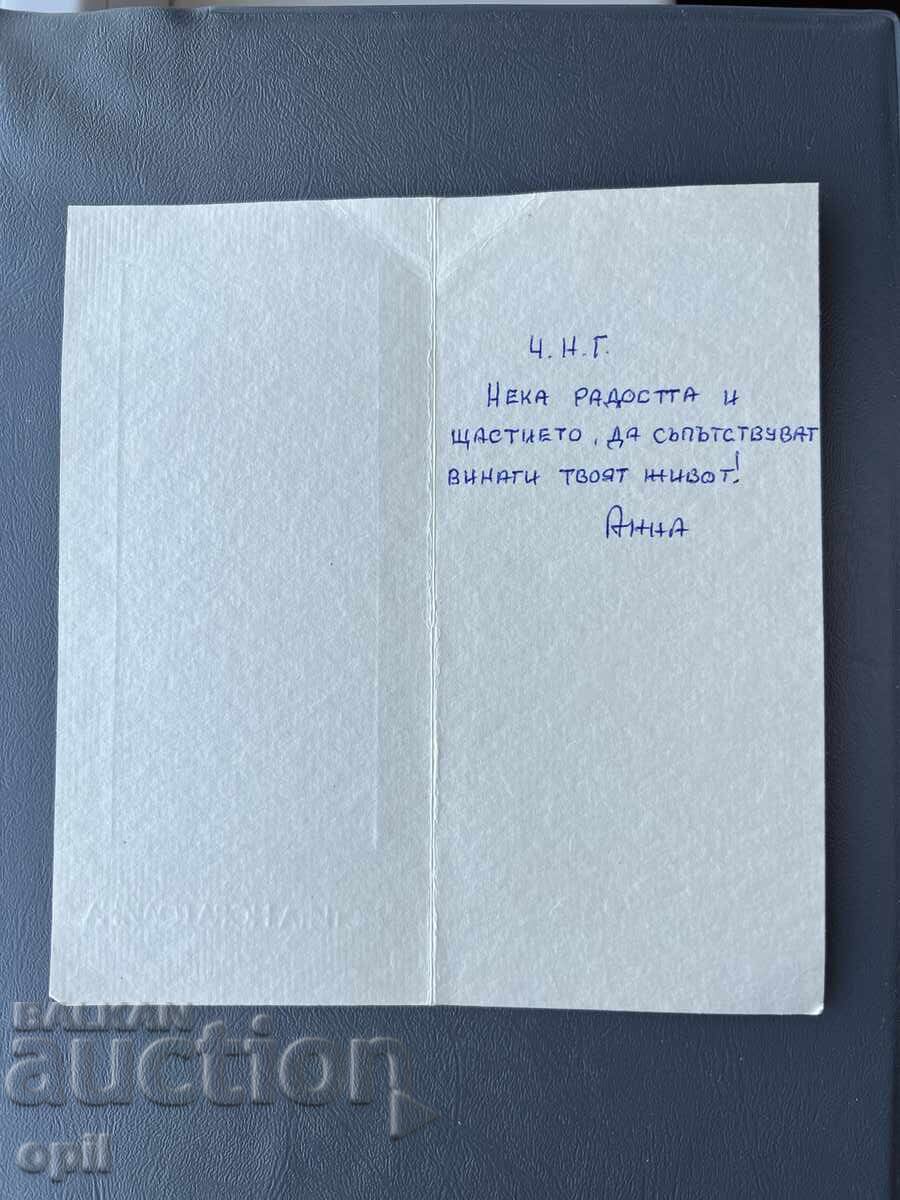 Ч.Н.Г.
НЕКА РАДОСТТА И
ЩАСТИЕТО, ДА СЪПЪТСТВУВАТ
ВИНАГИ ТВОЯТ ЖИВОТ!
АННА
BALKAN
auction
opil